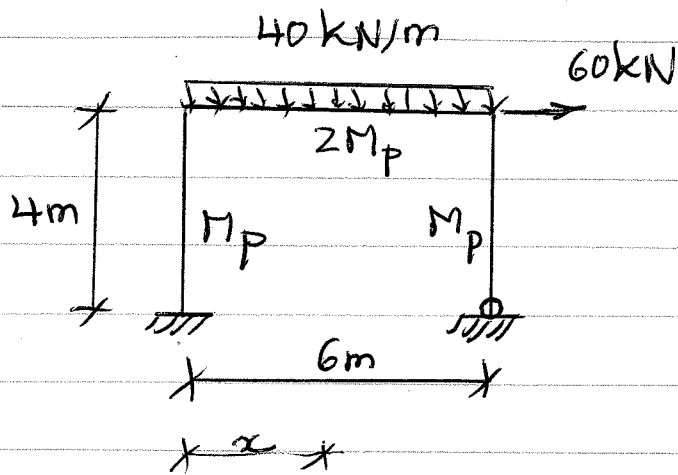 40kN/m
60kN
2Mp
4m
Mp
Mp
6m
x